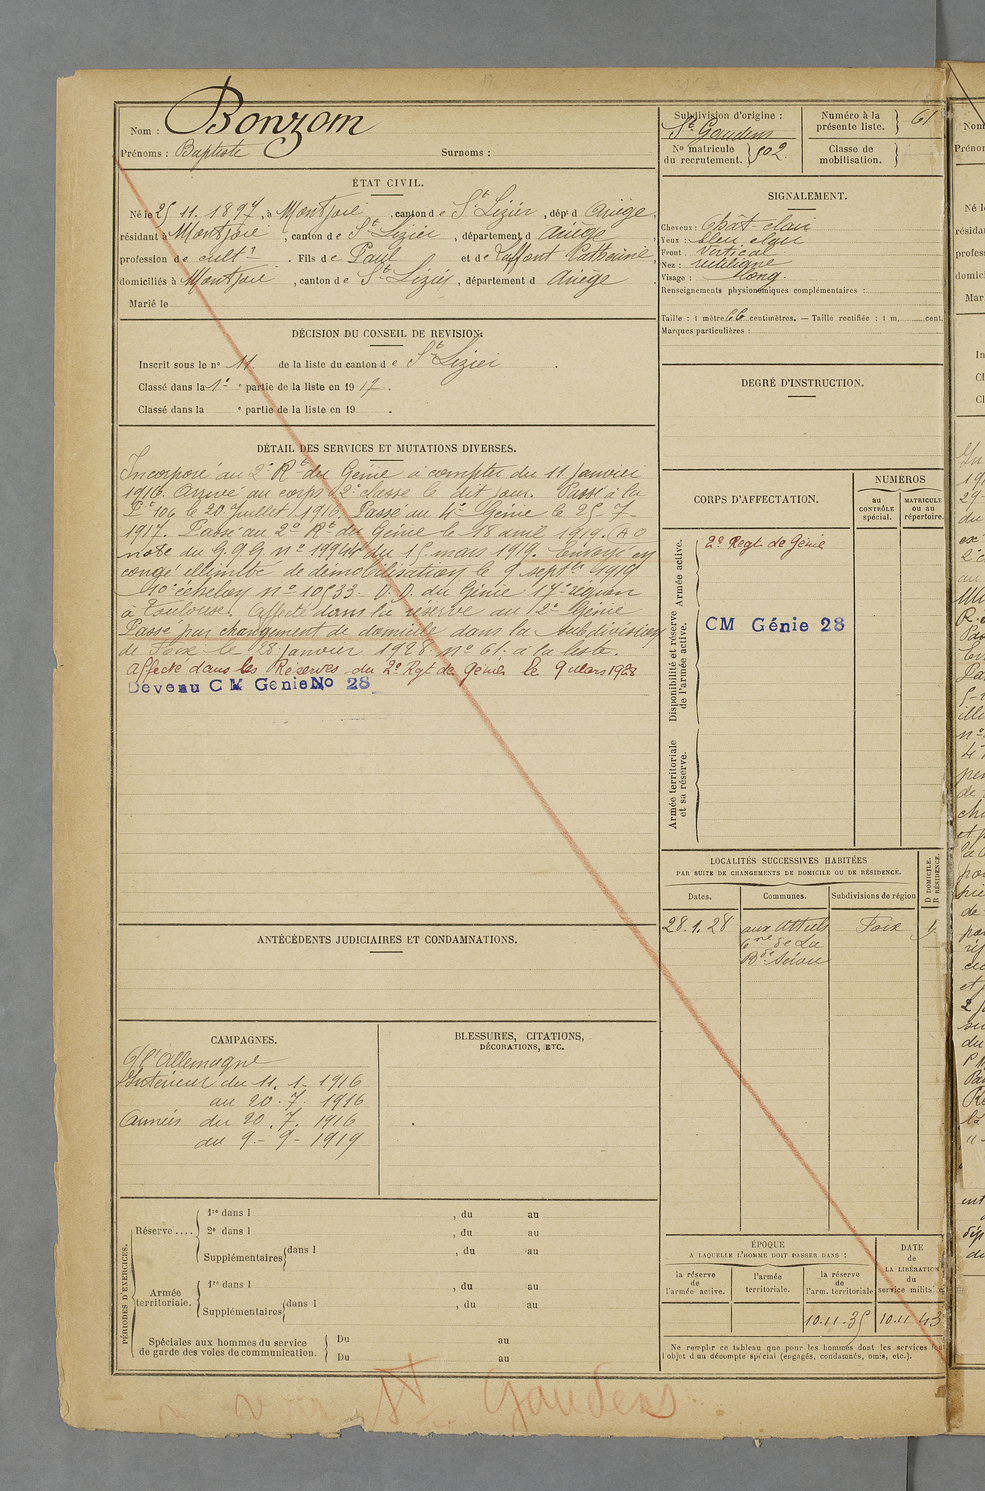 Nom : Bonzom
Prénoms : Baptiste Surnoms :
ÉTAT CIVIL.
Né le 25 11. 1897, à Montjoie, canton de St Lizier, dépt d Ariège.
résidant à Montjoie, canton de St Lizier, département d Ariège,
profession de cultr. Fils de Paul et de Laffont Catherine,
domiciliés à Montjoie, canton de St Lizier, département d Ariège
Marié le
DÉCISION DU CONSEIL DE REVISION.
Inscrit sous le no 11 de la liste du canton de St Lizier.
Classé dans la 1e partie de la liste en 1917.
Classé dans la e partie de la liste en 19 .
DÉTAIL DES SERVICES ET MUTATIONS DIVERSES.
Incorporé au 2e Rt du Génie à compter du 11 Janvier
1916. Arrivé au corps 2e classe le dit jour. Passé à la
Cie 106 le 20 Juillet 1916. Passé au 4e Génie le 25-7-
1917. Passé au 2e Rt du Génie le 18 avril 1919. (A O
note du G.Q.G no 19944 du 15 mars 1919. Envoyé en
congé illimité de démobilisation le 9 septbre 1919
10e échelon no 10533. D.D. du Génie 17e région
à Toulouse. Affecté dans la réserve au 2e Génie
Passé par changement de domicile dans la subdivision
de Foix le 28 janvier 1928 no 61 à la liste.
Affecté dans les Réserves du 2e Rgt de Génie le 9 Mars 1928
Devenu C M Génie No 28
ANTÉCÉDENTS JUDICIAIRES ET CONDAMNATIONS.
CAMPAGNES.
C/ l'Allemagne
Intérieur du 11. 1- 1916
au 20. 7. 1916
Armées du 20. 7. 1916
au 9- 9- 1919
BLESSURES, CITATIONS,
DÉCORATIONS, ETC.
PÉRIODES D'EXERCICES.
Réserve....
1re dans l , du au
2e dans l , du au
Supplémentaires dans l , du au
Armée
territoriale.
1re dans l , du au
Supplémentaires dans l , du au
Spéciales aux hommes du service
de garde des voies de communication.
Du au
Du au
St Gaudens
Subdivision d'origine :
St Gaudens
No matricule
du recrutement. 502
Numéro à la
présente liste. 61
Classe de
mobilisation.
SIGNALEMENT.
Cheveux : Chât-clair
Yeux : bleu clair
Front : Vertical
Nez : rectiligne
Visage : long.
Renseignements physionomiques complémentaires :
Taille : 1 mètre 66 centimètres. — Taille rectifiée : 1 m. cent.
Marques particulières :
DEGRÉ D'INSTRUCTION.
CORPS D'AFFECTATION.
NUMÉROS
au
CONTRÔLE
spécial.
MATRICULE
ou au
répertoire.
Armée active.
2e Regt. de Génie
Disponibilité et réserve
de l'armée active.
CM Génie 28
Armée territoriale
et sa réserve.
LOCALITÉS SUCCESSIVES HABITÉES
PAR SUITE DE CHANGEMENTS DE DOMICILE OU DE RÉSIDENCE.
Dates. Communes. Subdivisions de région
D DOMICILE.
R RÉSIDENCE.
28.1.28 Foix
ÉPOQUE
A LAQUELLE L'HOMME DOIT PASSER DANS :
la réserve
de
l'armée active.
l'armée
territoriale.
la réserve
de
l'arm. territoriale
10-11-35
DATE
de
LA LIBÉRATION
du
service milita
10.11 43
Ne remplir ce tableau que pour les hommes dont les services font
l'objet d'un décompte spécial (engagés, condamnés, omis, etc.).